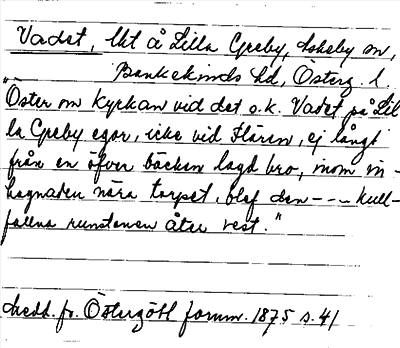 Vadet, lht å Lilla Greby, Askeby sn,
Bankekinds hd, Österg. l.
"Öster om kyrkan vid det s.k. Vadet på Lil-
la Greby egor, icke vid Flären, ej långt
från en öfver bäcken lagd bro, inom in-
hagnaden nära torpet, blef den --- kull-
fallna runstenen åter rest."
Medd. fr. Östergötl fornm. 1875 s. 41